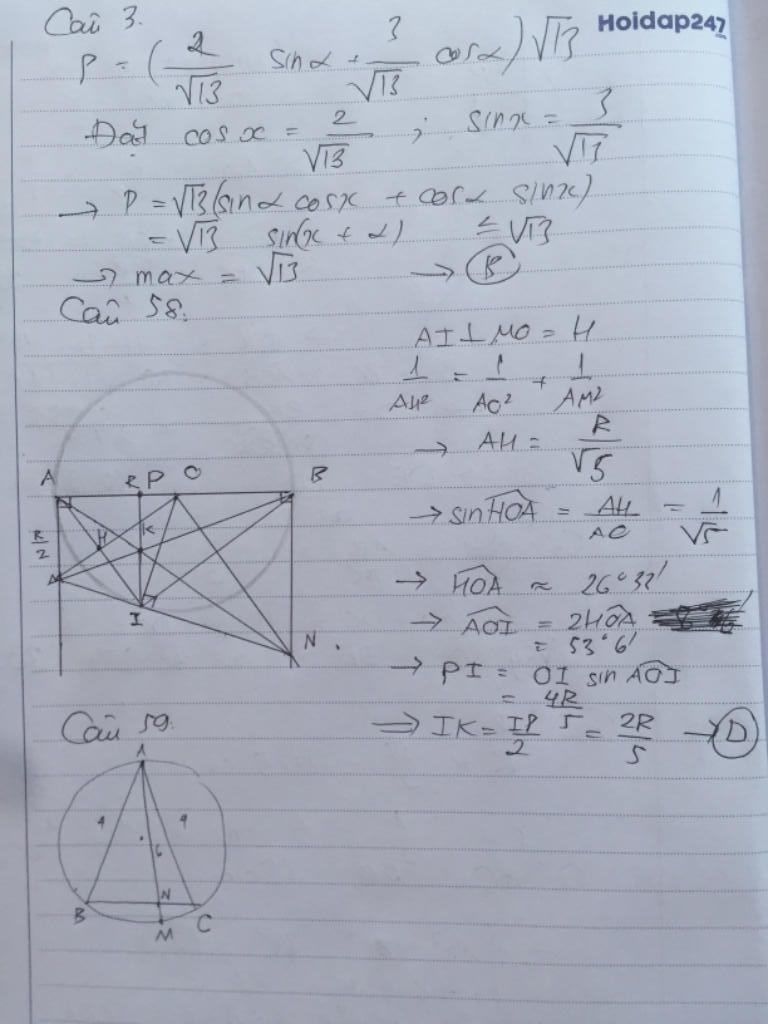 Câu 3.
Hoidap247
P = ( 2/√13 sinα + 3/√13 cosα ) √13
Đặt cosx = 2/√13 ; sinx = 3/√13
→ P = √13 (sinα cosx + cosα sinx)
= √13 sin(x + α) ≤ √13
→ max = √13 → B
Câu 58.
AI ⊥ MO = H
1/AH² = 1/AO² + 1/AM²
→ AH = R/√5
→ sin HOA = AH/AO = 1/√5
→ HOA ≈ 26°32'
→ AOI = 2HOA
= 53°6'
→ PI = OI sin AOI
= 4R/5
⇒ IK = IP/2 = 2R/5 → D
A
P
O
B
R/2
H
K
I
N
Câu 59.
A
4
6
B
N
C
M